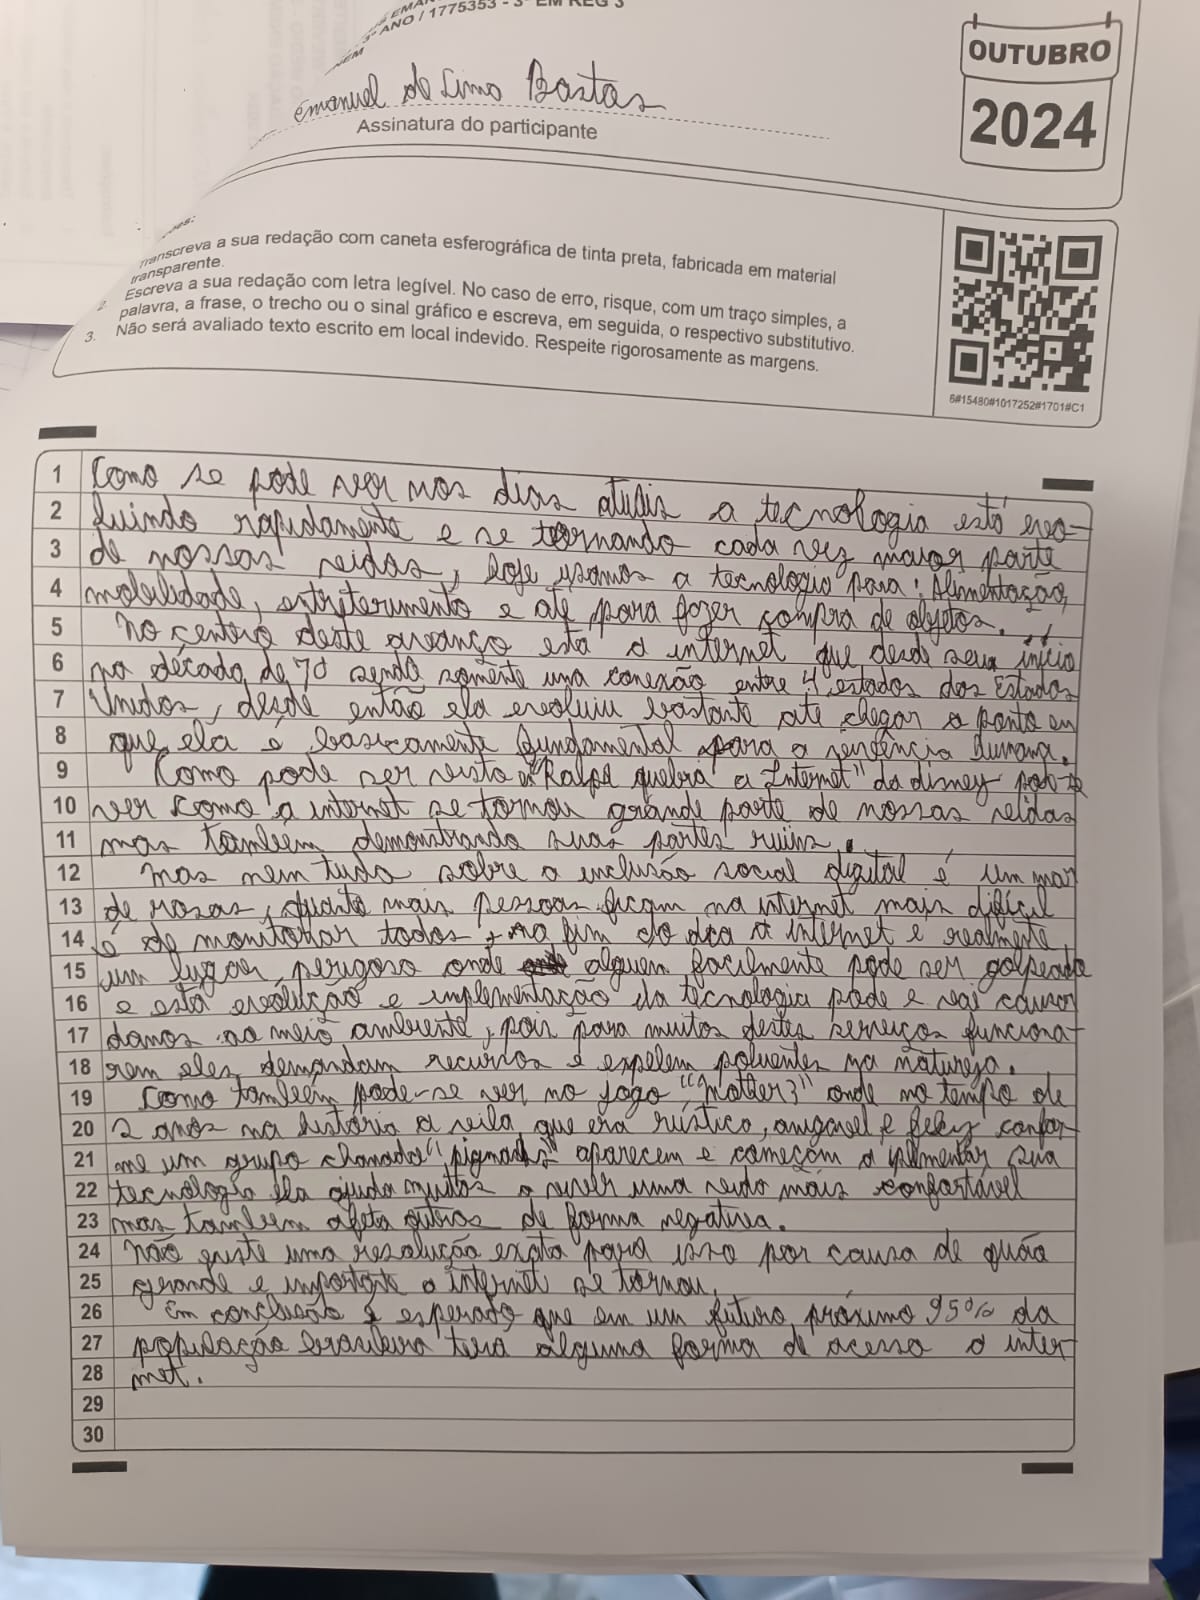 3º ANO / 1775353 - 3ª EM REG 3
Emanuel de Lima Bastos
Assinatura do participante
OUTUBRO
2024
Transcreva a sua redação com caneta esferográfica de tinta preta, fabricada em material
transparente.
2. Escreva a sua redação com letra legível. No caso de erro, risque, com um traço simples, a
palavra, a frase, o trecho ou o sinal gráfico e escreva, em seguida, o respectivo substitutivo.
3. Não será avaliado texto escrito em local indevido. Respeite rigorosamente as margens.
6#15480#1017252#1701#C1
1 Como se pode ver nos dias atuais a tecnologia está evo-
2 luindo rapidamente e se tornando cada vez maior parte
3 de nossas vidas, hoje usamos a tecnologia para: Alimentação,
4 mobilidade, entreterimento e até para fazer compra de objetos.
5 No centro deste avanço está a internet que desde seu início
6 na década de 70 sendo somente uma conexão entre 4 estados dos Estados
7 Unidos, desde então ela evoluiu bastante até chegar a ponto em
8 que ela é basicamente fundamental para a vivência humana.
9 Como pode ser visto "Ralph quebra a Internet" da disney pode-se
10 ver como a internet se tornou grande parte de nossas vidas
11 mas também demonstrando suas partes ruins.
12 Mas nem tudo sobre a inclusão social digital é um mar
13 de rosas, quanto mais pessoas ficam na internet mais difícil
14 é de monitorar todos, no fim do dia a internet e realmente
15 um lugar perigoso onde alguem facilmente pode ser golpeado
16 e está evolução e implementação da tecnologia pode e vai causar
17 danos ao meio ambiente, pois para muitos destes serviços funciona-
18 rem eles demandam recursos e expelem poluentes na natureza.
19 Como também pode-se ver no jogo "Mother 3" onde no tempo de
20 2 anos na história a vila que era rústico, amigavel e feliz confor-
21 me um grupo chamado "pigmasks" aparecem e começam a plementar sua
22 tecnologia ela ajuda muitos a viver uma vida mais confortável
23 mas também afeta outros de forma negativa.
24 Não existe uma resolução exata para isso por causa de quão
25 grande e importante a internet se tornou.
26 Em conclusão é esperado que em um futuro próximo 95% da
27 população brasileira terá alguma forma de acesso a inter-
28 net.
29
30